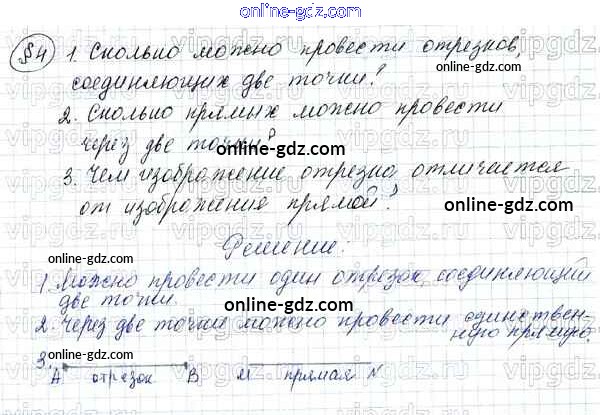 online-gdz.com
§4 1. Сколько можно провести отрезков,
соединяющих две точки?
online-gdz.com
2. Сколько прямых можно провести
через две точки?
online-gdz.com
3. Чем изображение отрезка отличается
от изображения прямой?
online-gdz.com
Решение:
online-gdz.com
1. Можно провести один отрезок, соединяющий
две точки.
online-gdz.com
2. Через две точки можно провести единствен-
ную прямую.
online-gdz.com
3.
А отрезок В М прямая N